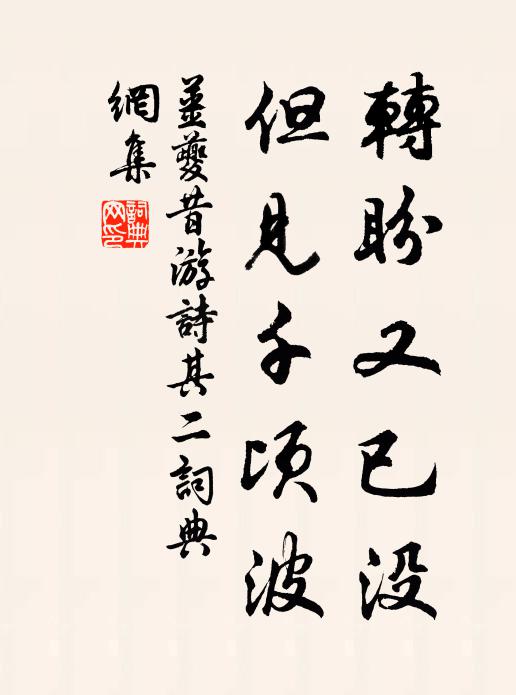 轉盼又已没
但見千頃波
姜夔昔游詩其二詞典
網集
詞典网印